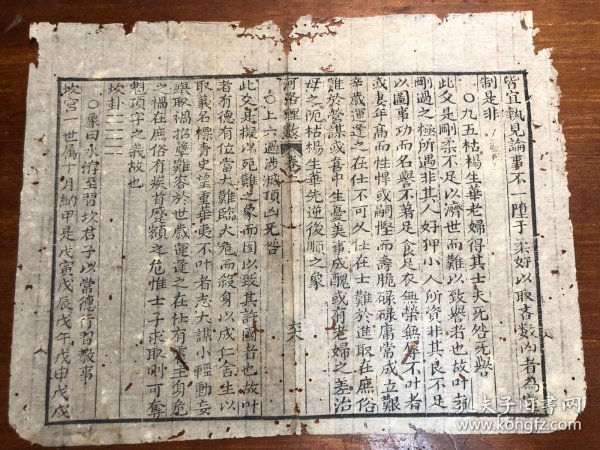 皆宜執見論事不一陋于柔好以取吝數凶者為官
制是非
○九五枯楊生華老婦得其士夫无咎无譽
此爻是剛柔不足以濟世而難以致譽者也故叶者
剛過之極所遇非其人好狎小人所資非其良不足
以圖事功而名譽不著足食足衣無榮無辱不叶者
或妻年高而性悍或嗣慳而壽脆碌碌庸常成立艱
辛歲運逢之在仕不可久仕在士難於進取在庶俗
難於營謀或喜中生憂美事成醜或有老婦之羞治
母之阨枯楊生華先逆後順之象
河洛理數 卷 六八
○上六過涉滅頂凶无咎
此爻是擬以死難之象而因以致其許國者也故叶
者有德有位當大難臨大危而殺身以成仁舍生以
取義名標青史望重華夷不叶者志大謀小輕動妄
舉取禍招孽難容於世歲運逢之在仕有 主角危
之禍在庶俗有疾首蹙額之危惟士子求取則可奪
魁頂字之義故也
坎卦
坎宮一世屬十月納甲是戊寅戊辰戊午戊申戊戌
○象曰水洊至習坎君子以常德行習教事
孔夫子旧书网
www.kongfz.com